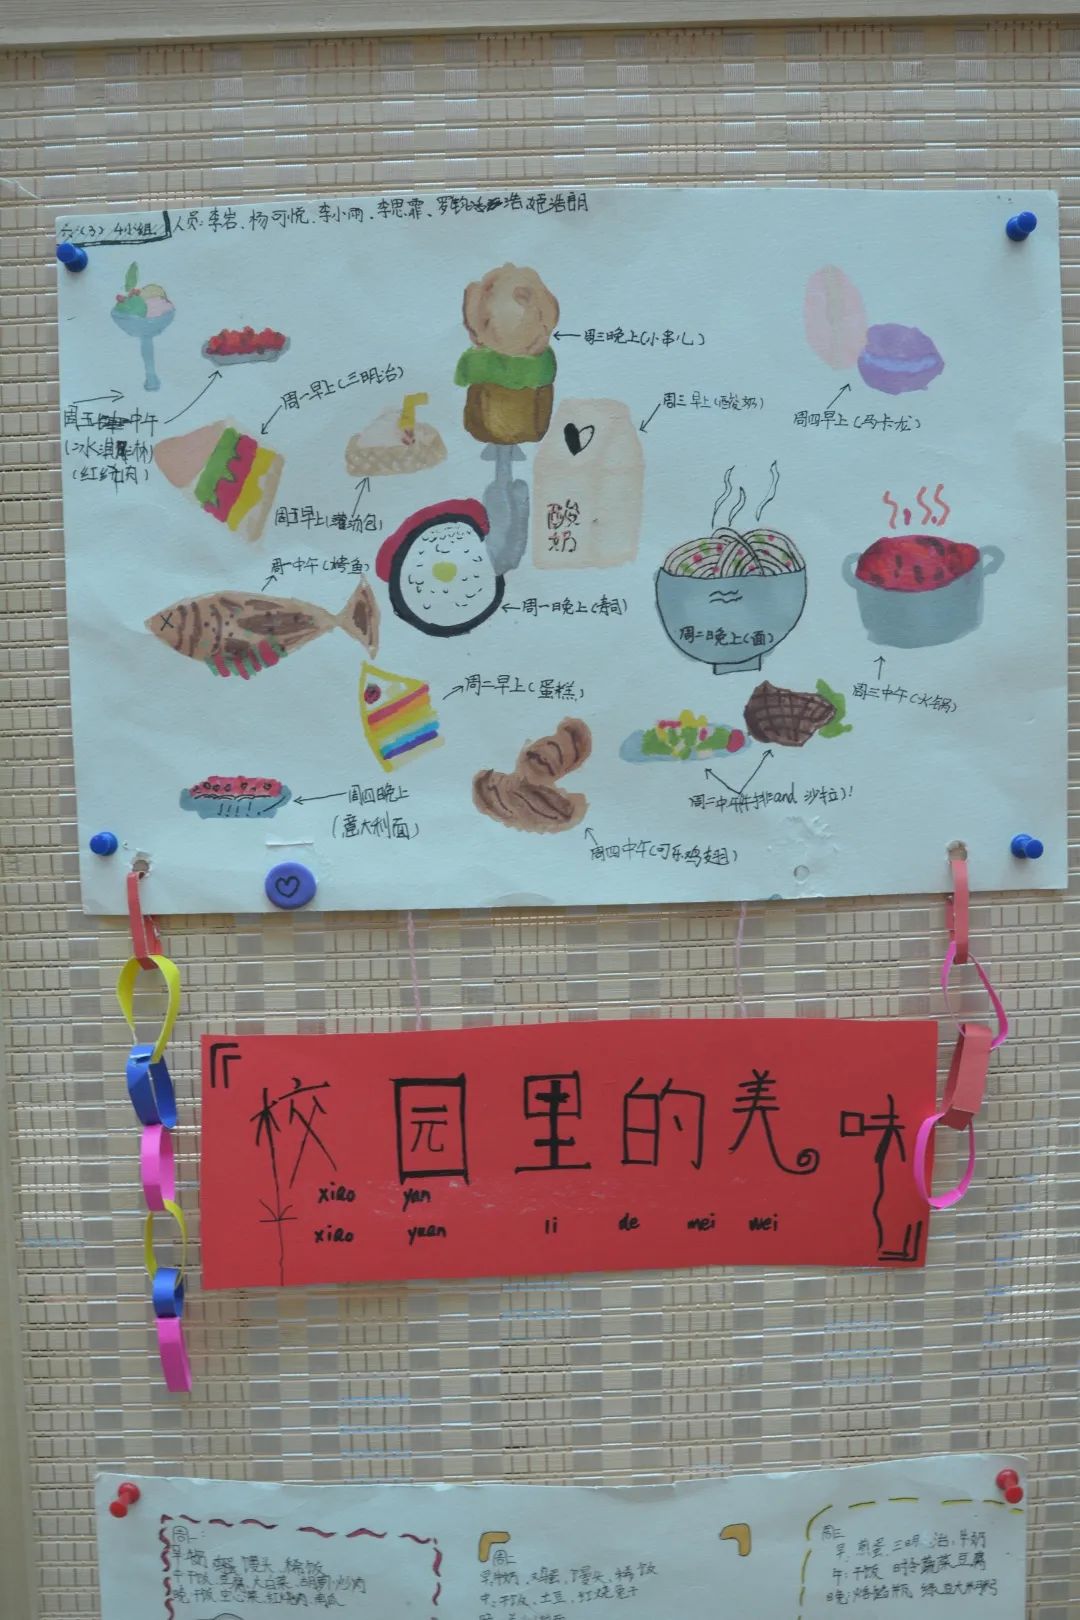 六(3) 4小组
人员:李岩、杨可悦、李小雨、李思霏、罗钧浩 姬浩朗
周三晚上(小串儿)
周一早上(三明治)
周三早上(酸奶)
周四早上(马卡龙)
周五中午
(冰淇淋)
(红烧肉)
周五早上(灌汤包)
酸
奶
周一中午(烤鱼)
周一晚上(寿司)
周二晚上(面)
周二早上(蛋糕)
周三中午(火锅)
周四晚上
(意大利面)
周二中午(牛排and 沙拉)!
周四中午(可乐鸡翅)
『校园里的美味』
xiao yan
xiao yuan li de mei wei
周一:
馒头、稀饭
午:干饭、豆腐、大白菜、胡萝卜炒肉
晚:干饭、空心菜、红烧肉、南瓜
周二
早:牛奶、鸡蛋、馒头、稀饭
午:干饭、土豆、红烧兔子
周三
早:煎蛋、三明治、牛奶
午:干饭 时令蔬菜 豆腐